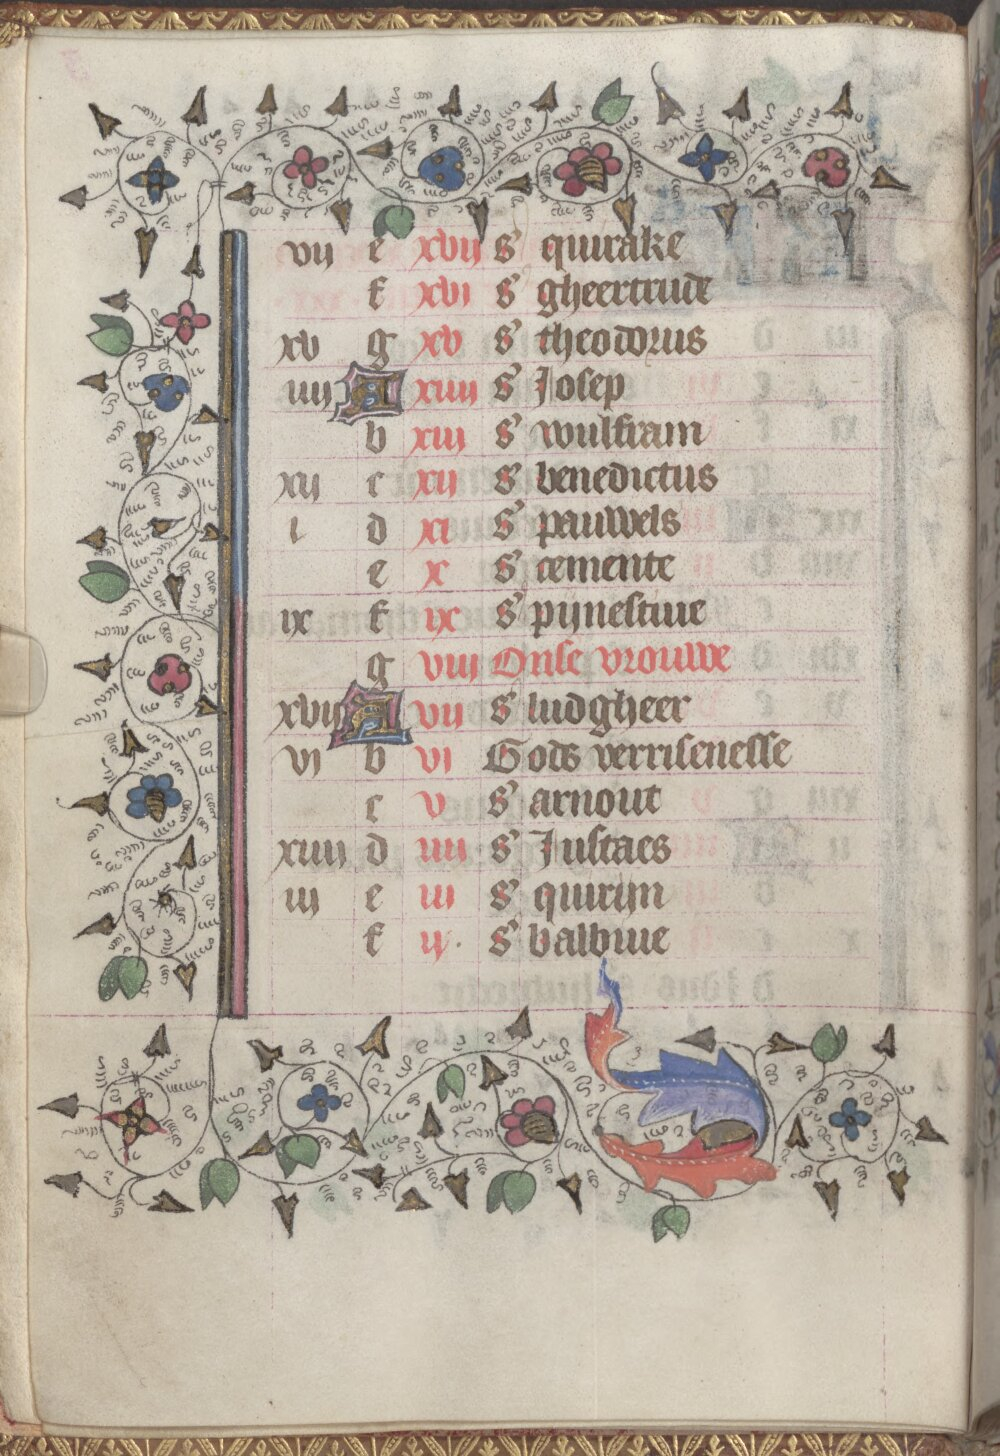 vij e xvij s' quirake
f xvi s' gheertrude
xv g xv s' theodorus
iiij A xiiij s' Josep
b xiij s' wulfram
xij c xij s' benedictus
i d xi s' pauwels
e x s' cemente
ix f ix s' pijnestiue
g viij Onse vrouwe
xvij A vij s' ludgheer
vi b vi Gods verrisenesse
c v s' arnout
xiiij d iiij s' Justaes
iij e iij s' quirijn
f ij. s' balbine